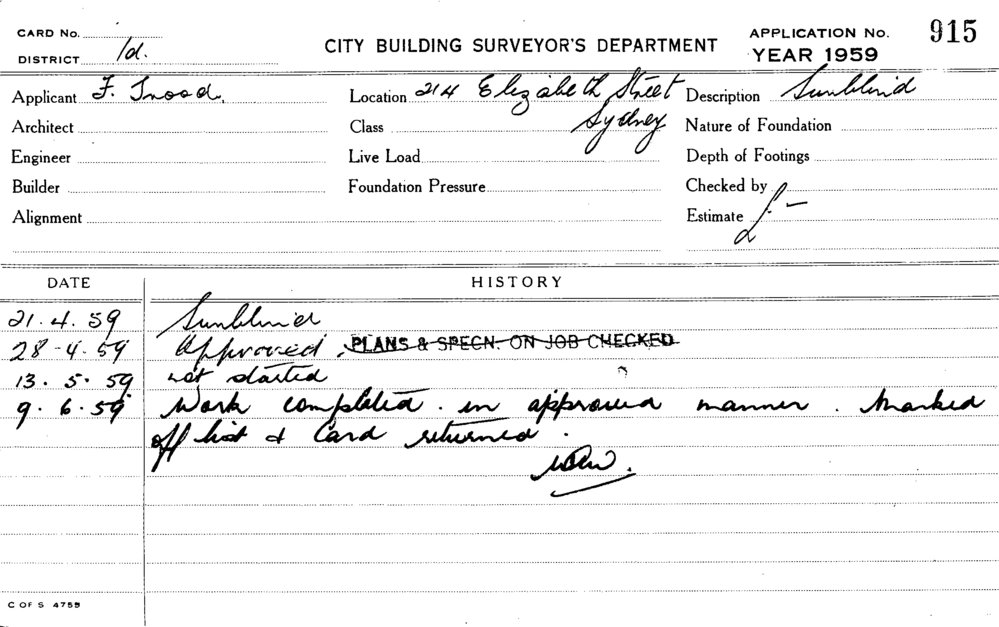 CARD No.
CITY BUILDING SURVEYOR'S DEPARTMENT
APPLICATION No. 915
YEAR 1959
DISTRICT 1d.
Applicant F. Trood.
Location 214 Elizabeth Street Sydney
Description Sunblind
Architect
Class
Nature of Foundation
Engineer
Live Load
Depth of Footings
Builder
Foundation Pressure
Checked by
Alignment
Estimate £ -
DATE
HISTORY
21.4.59 Sunblind
28-4.59 Approved, PLANS & SPECN. ON JOB CHECKED
13.5.59 not started
9.6.59 Work completed in approved manner. Marked
off list & Card returned.
C OF S 4759